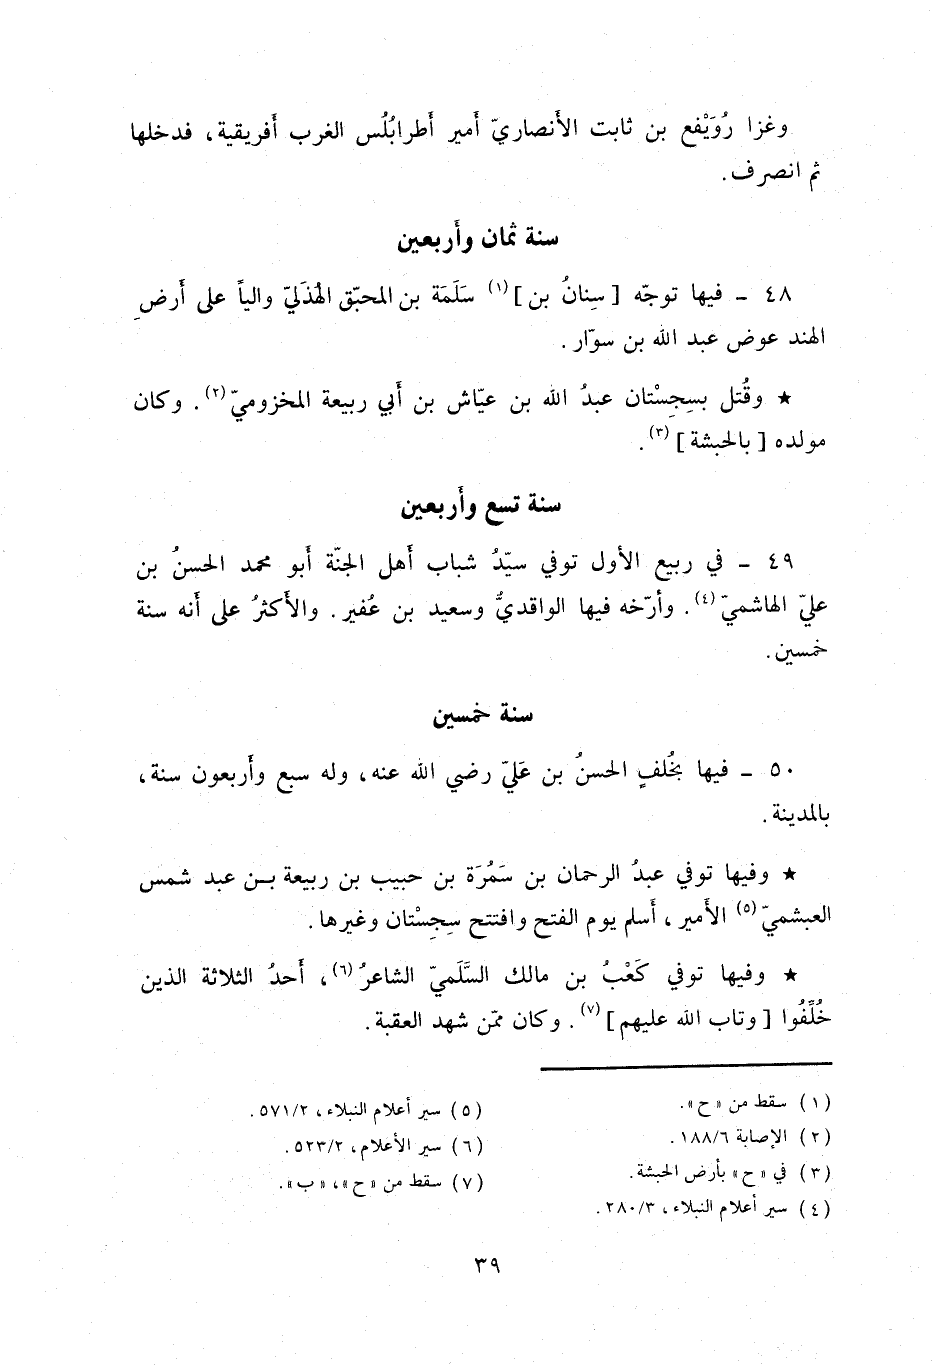 وغزا رُوَيْفع بن ثابت الأَنصاريّ أَمير أَطرابُلُس الغرب أَفريقية، فدخلها
ثم انصرف.
سنة ثمان وأَربعين
٤٨ - فيها توجّه [سِنانُ بن](١) سَلَمَة بن المحبّق الهُذَليّ والياً على أَرضِ
الهند عوض عبد الله بن سوّار.
★ وقُتل بسِجِسْتان عبدُ الله بن عيّاش بن أَبي ربيعة المخزوميّ(٢). وكان
مولده [بالحبشة](٣).
سنة تسع وأَربعين
٤٩ - في ربيع الأول توفي سيّدُ شباب أَهل الجنّة أَبو محمد الحسنُ بن
عليّ الهاشميّ(٤). وأرّخه فيها الواقديُّ وسعيد بن عُفير. والأَكثرُ على أَنه سنة
خمسين.
سنة خمسين
٥٠ - فيها بخُلفٍ الحسنُ بن عَليّ رضي الله عنه، وله سبع وأَربعون سنة،
بالمدينة.
★ وفيها توفي عبدُ الرحمان بن سَمُرَة بن حبيب بن ربيعة بن عبد شمس
العبشميّ(٥) الأَمير، أَسلم يوم الفتح وافتتح سِجِسْتان وغيرها.
★ وفيها توفي كَعْبُ بن مالك السَّلَميّ الشاعرُ(٦)، أَحدُ الثلاثة الذين
خُلِّفُوا [وتاب الله عليهم](٧). وكان ممّن شهد العقبة.
(١) سقط من «ح».
(٢) الإصابة ١٨٨/٦.
(٣) في «ح» بأرض الحبشة.
(٤) سير أعلام النبلاء، ٢٨٠/٣.
(٥) سير أعلام النبلاء، ٥٧١/٢.
(٦) سير الأعلام، ٥٢٣/٢.
(٧) سقط من «ح»، «ب».
٣٩